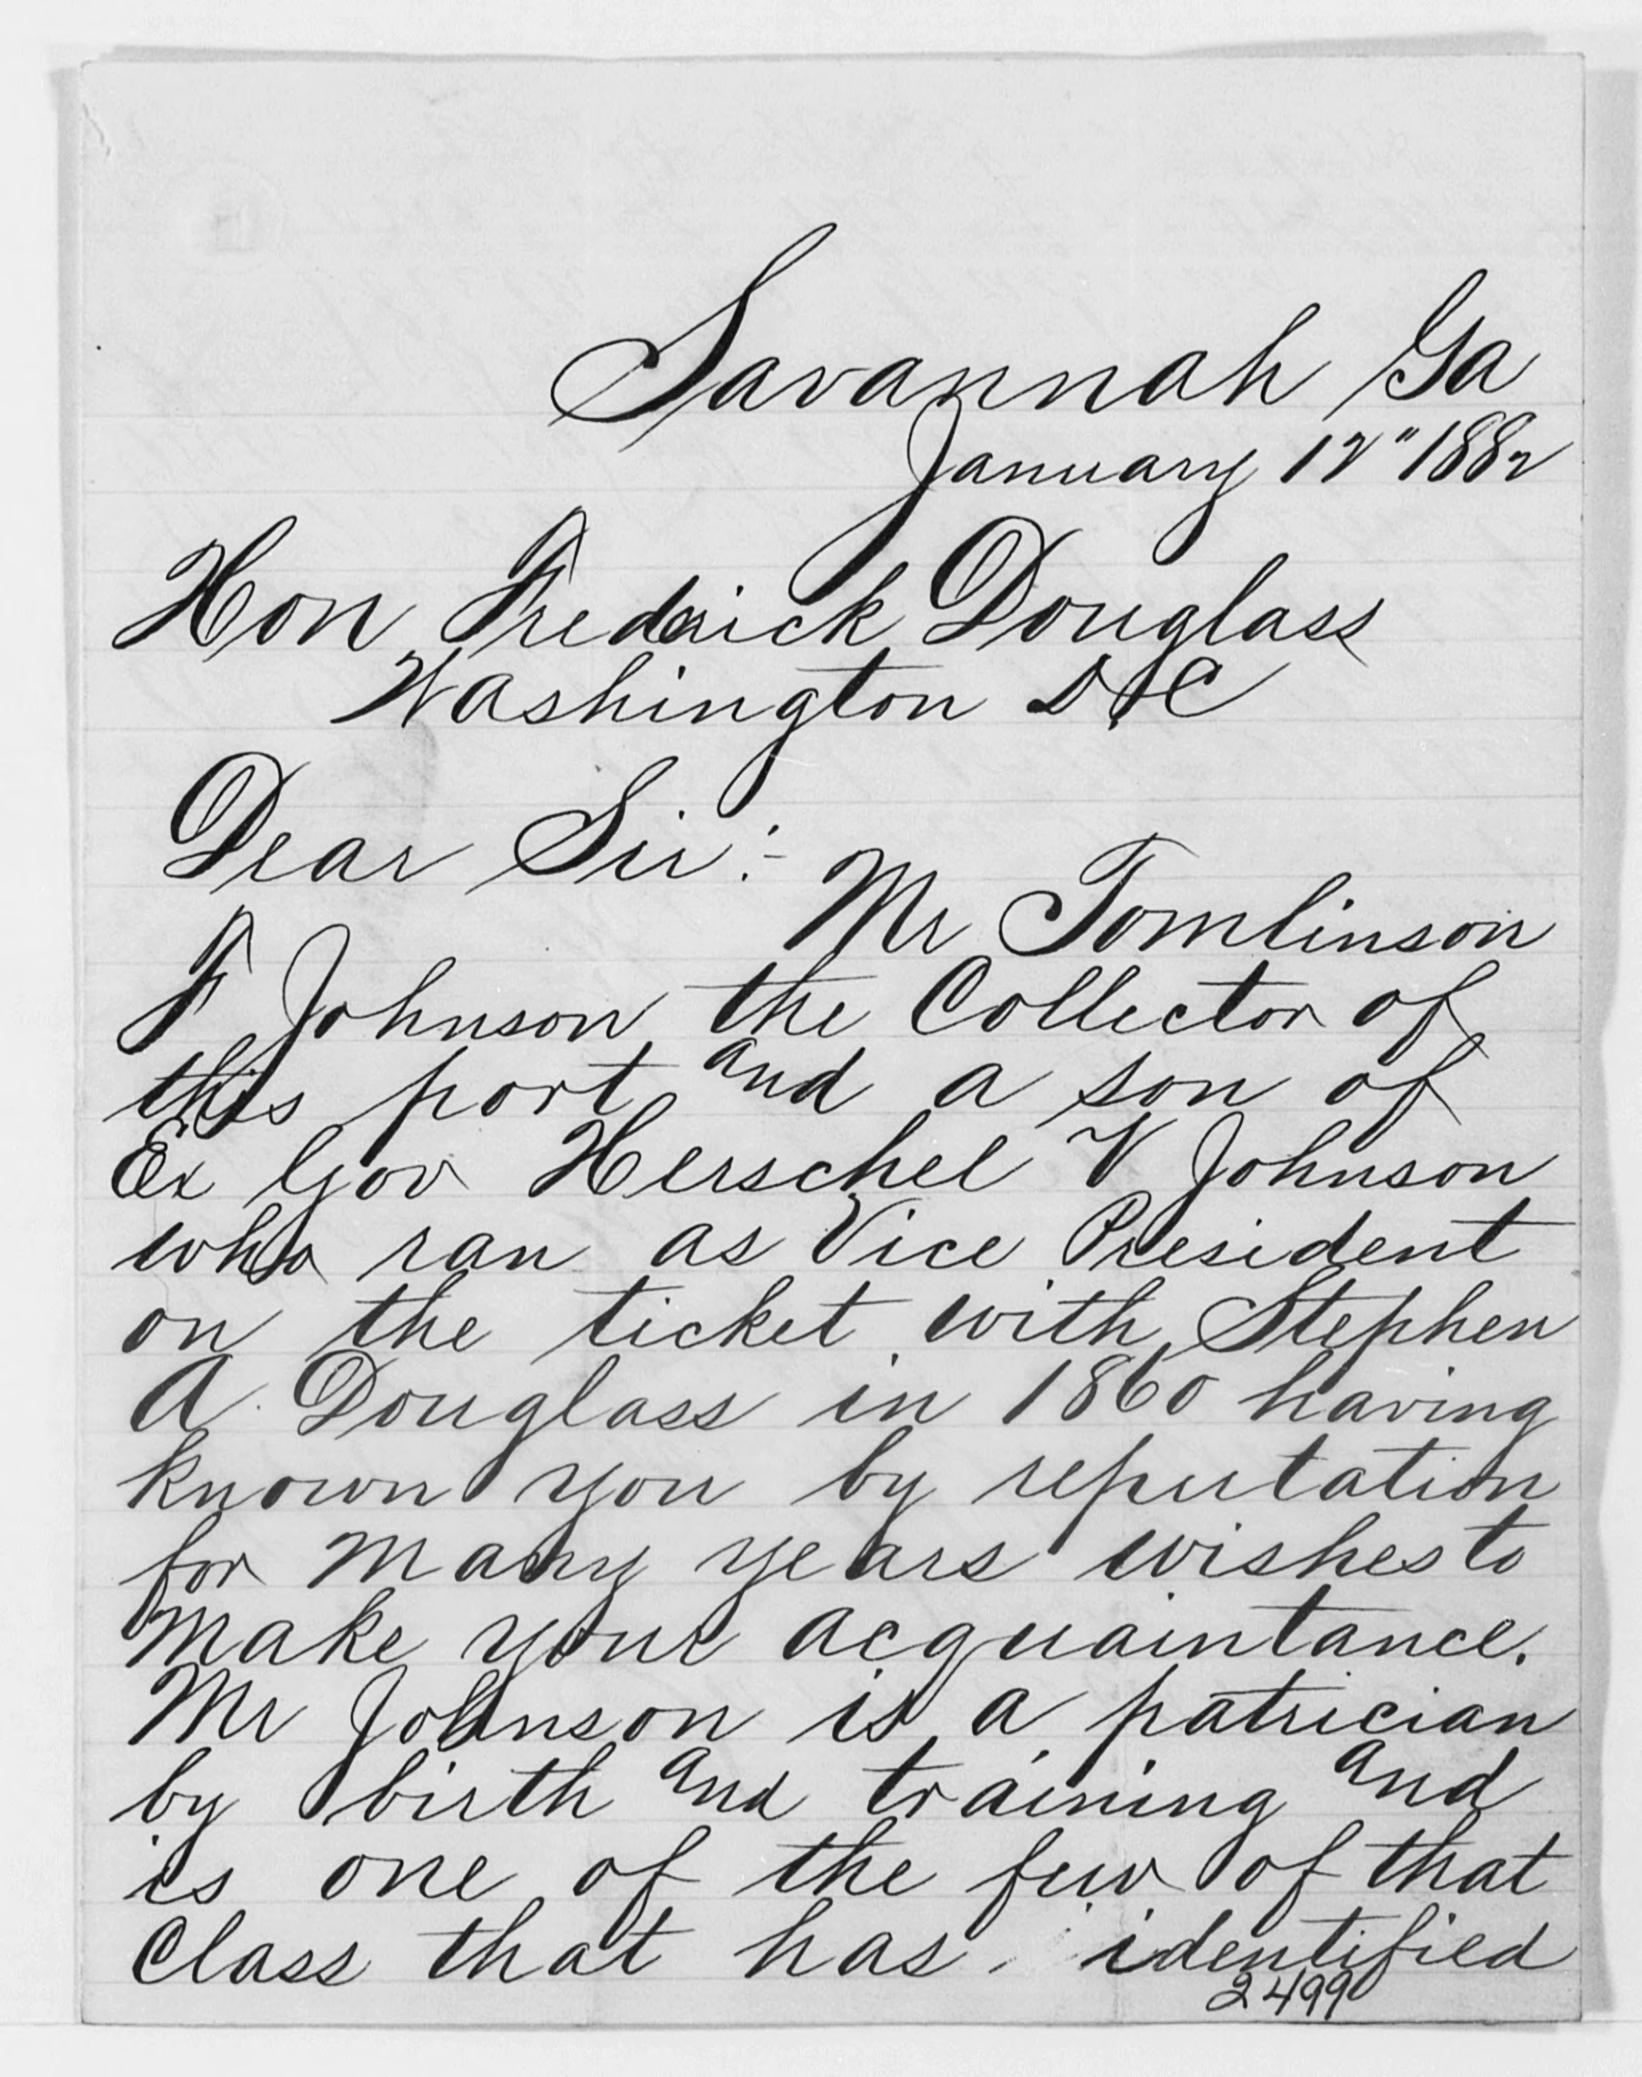 Savannah Ga
January 12" 1882
Hon Fredrick Douglass
Washington D.C
Dear Sir :-
Mr Tomlinson
F Johnson the Collector of
this port and a son of
Ex Gov Herschel V Johnson
who ran as Vice President
on the ticket with Stephen
A. Douglass in 1860 having
known you by reputation
for many years wishes to
make your acquaintance.
Mr Johnson is a patrician
by birth and training and
is one of the few of that
Class that has identified
2499